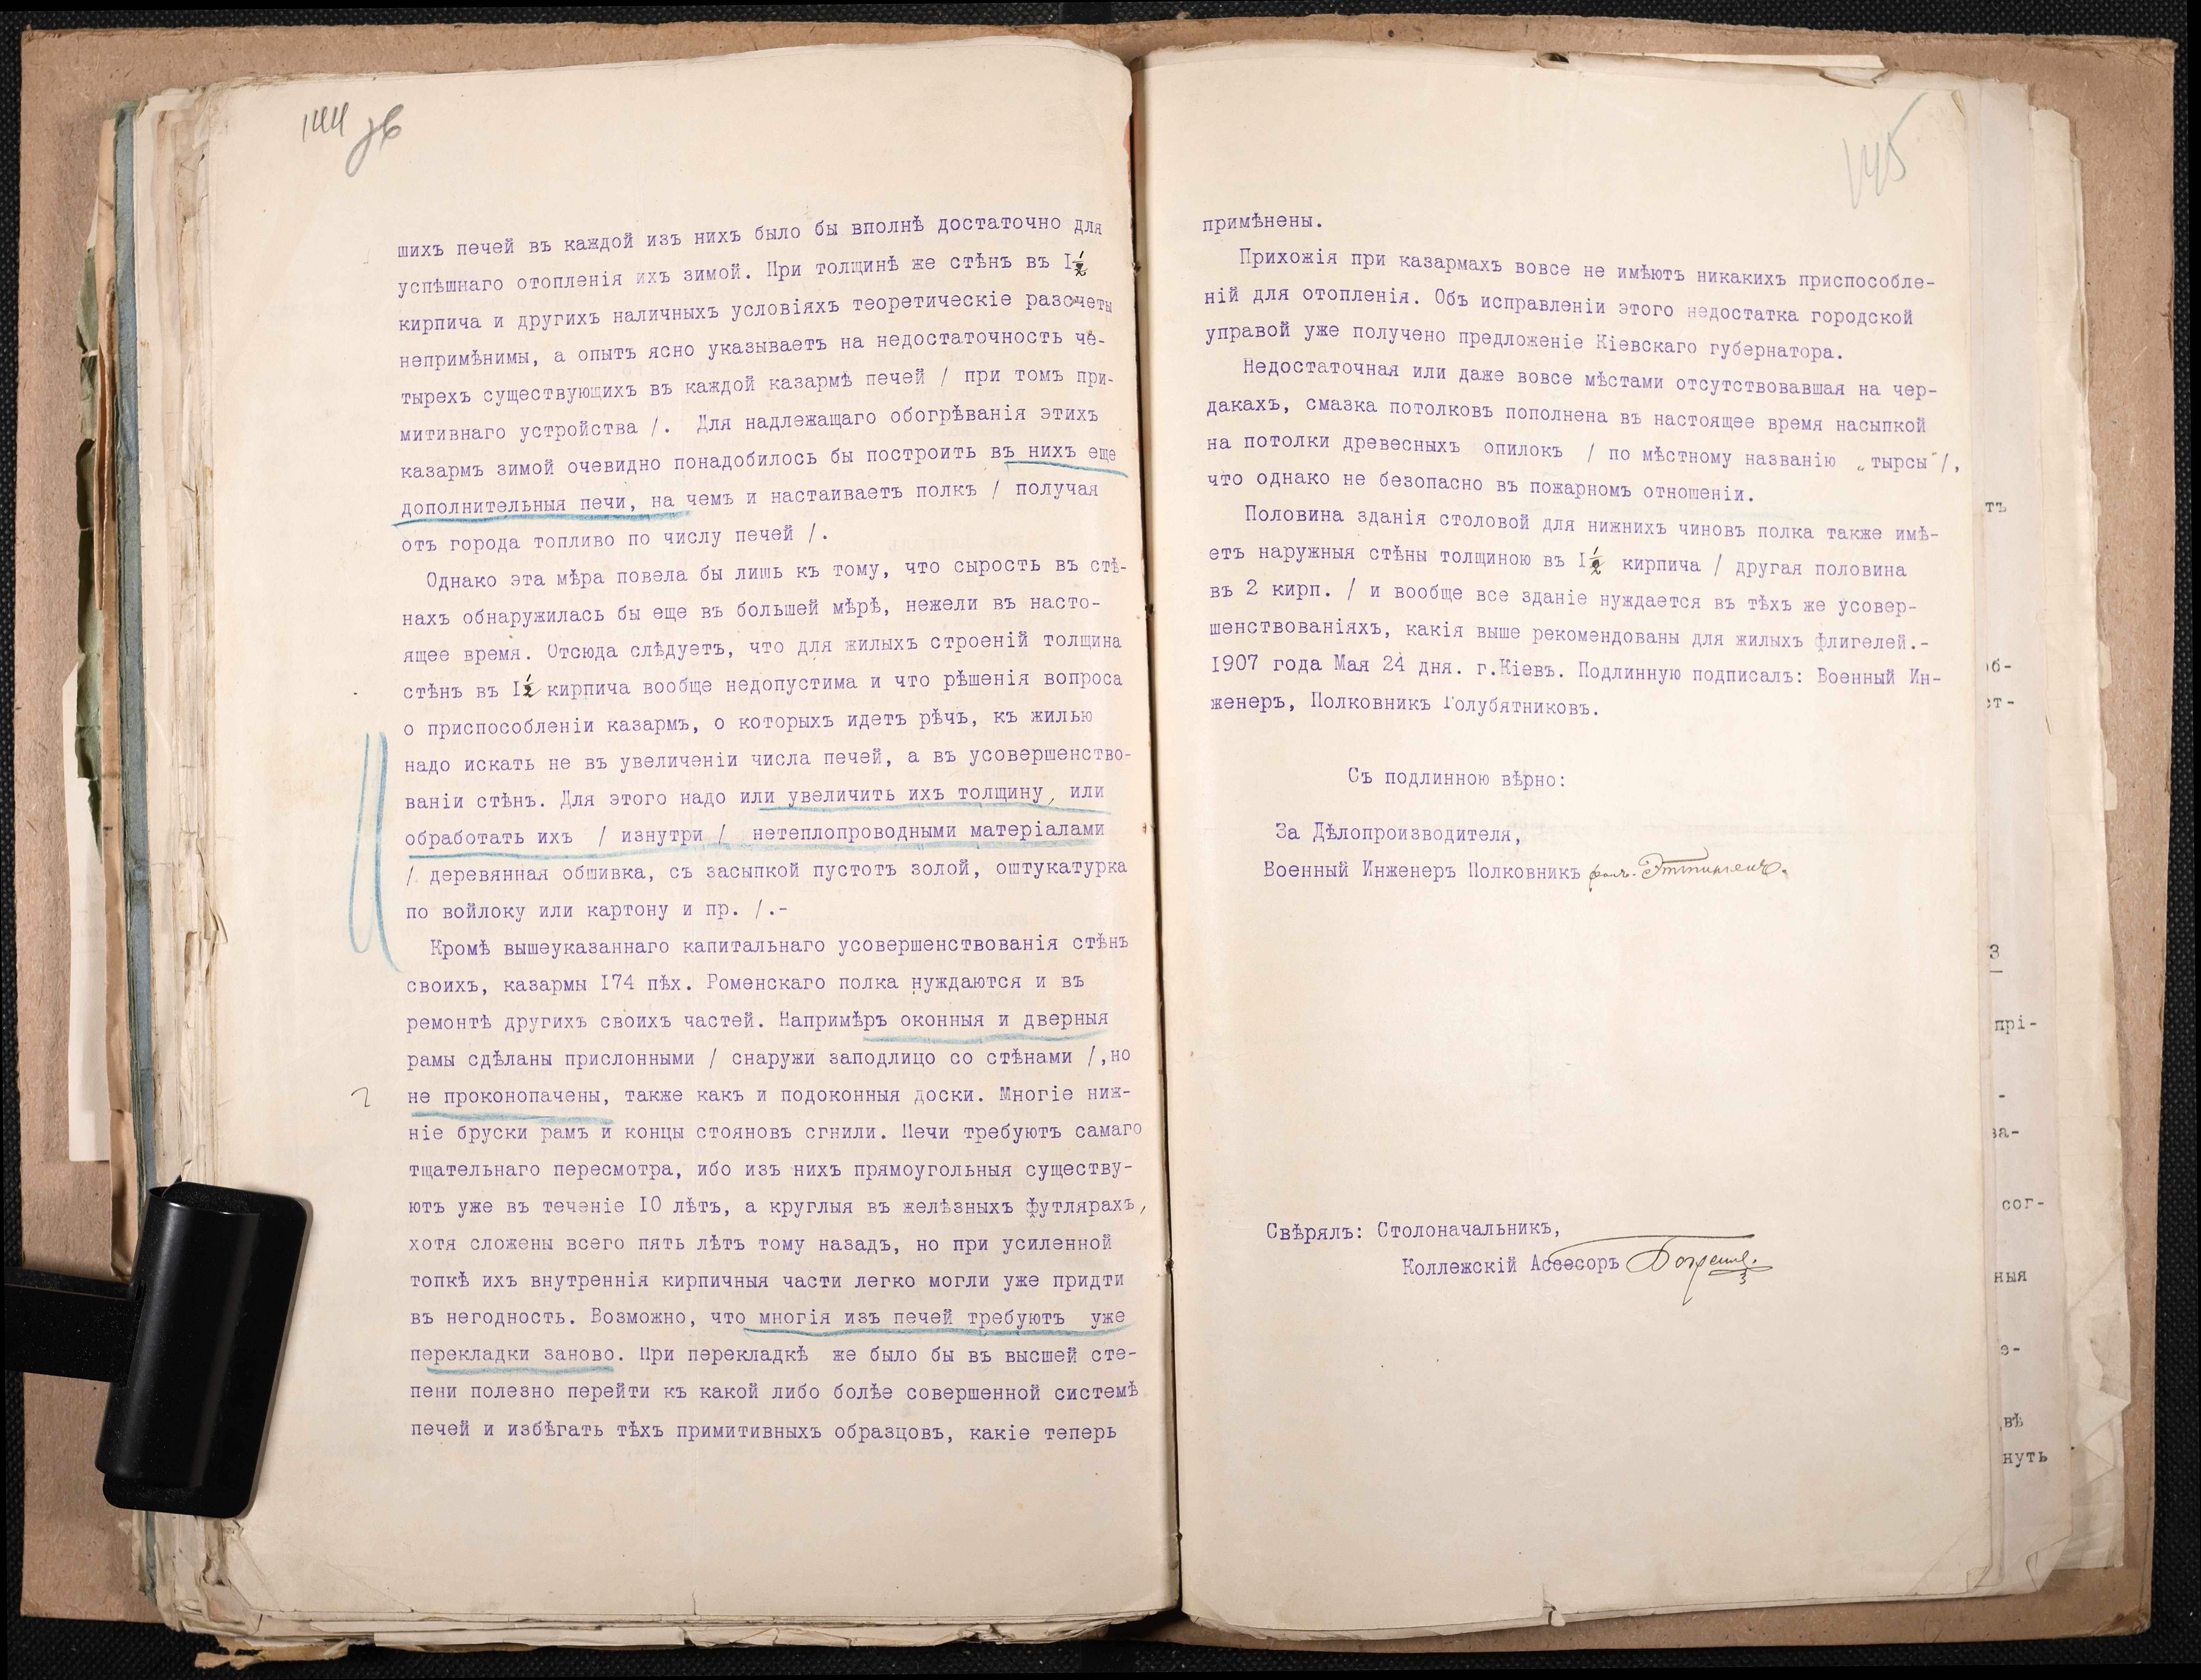 144 об
шихъ печей въ каждой изъ нихъ было бы вполнѣ достаточно для
успѣшнаго отопленія ихъ зимой. При толщинѣ же стѣнъ въ I½
кирпича и другихъ наличныхъ условіяхъ теоретическіе разсчеты
непримѣнимы, а опытъ ясно указываетъ на недостаточность че-
тырехъ существующихъ въ каждой казармѣ печей / при томъ при-
митивнаго устройства /. Для надлежащаго обогрѣванія этихъ
казармъ зимой очевидно понадобилось бы построить въ нихъ еще
дополнительныя печи, на чемъ и настаиваетъ полкъ / получая
отъ города топливо по числу печей /.
Однако эта мѣра повела бы лишь къ тому, что сырость въ стѣ-
нахъ обнаружилась бы еще въ большей мѣрѣ, нежели въ насто-
ящее время. Отсюда слѣдуетъ, что для жилыхъ строеній толщина
стѣнъ въ I½ кирпича вообще недопустима и что рѣшенія вопроса
о приспособленіи казармъ, о которыхъ идетъ рѣчь, къ жилью
надо искать не въ увеличеніи числа печей, а въ усовершенство-
ваніи стѣнъ. Для этого надо или увеличить ихъ толщину, или
обработать ихъ / изнутри / нетеплопроводными матеріалами
/ деревянная обшивка, съ засыпкой пустотъ золой, оштукатурка
по войлоку или картону и пр. /.-
Кромѣ вышеуказаннаго капитальнаго усовершенствованія стѣнъ
своихъ, казармы I74 пѣх. Роменскаго полка нуждаются и въ
ремонтѣ другихъ своихъ частей. Напримѣръ оконныя и дверныя
рамы сдѣланы прислонными / снаружи заподлицо со стѣнами /,но
не проконопачены, также какъ и подоконныя доски. Многіе ниж-
ніе бруски рамъ и концы стояновъ сгнили. Печи требуютъ самаго
тщательнаго пересмотра, ибо изъ нихъ прямоугольныя существу-
ютъ уже въ теченіе I0 лѣтъ, а круглыя въ желѣзныхъ футлярахъ,
хотя сложены всего пять лѣтъ тому назадъ, но при усиленной
топкѣ ихъ внутреннія кирпичныя части легко могли уже придти
въ негодность. Возможно, что многія изъ печей требуютъ уже
перекладки заново. При перекладкѣ же было бы въ высшей сте-
пени полезно перейти къ какой либо болѣе совершенной системѣ
печей и избѣгать тѣхъ примитивныхъ образцовъ, какіе теперь
145
примѣнены.
Прихожія при казармахъ вовсе не имѣютъ никакихъ приспособле-
ній для отопленія. Объ исправленіи этого недостатка городской
управой уже получено предложеніе Кіевскаго губернатора.
Недостаточная или даже вовсе мѣстами отсутствовавшая на чер-
дакахъ, смазка потолковъ пополнена въ настоящее время насыпкой
на потолки древесныхъ опилокъ / по мѣстному названію „тырсы"/,
что однако не безопасно въ пожарномъ отношеніи.
Половина зданія столовой для нижнихъ чиновъ полка также имѣ-
етъ наружныя стѣны толщиною въ I½ кирпича / другая половина
въ 2 кирп. / и вообще все зданіе нуждается въ тѣхъ же усовер-
шенствованіяхъ, какія выше рекомендованы для жилыхъ флигелей.-
I907 года Мая 24 дня. г.Кіевъ. Подлинную подписалъ: Военный Ин-
женеръ, Полковникъ Голубятниковъ.
Съ подлинною вѣрно:
За Дѣлопроизводителя,
Военный Инженеръ Полковникъ фонъ-Эттингенъ.
Свѣрялъ: Столоначальникъ,
Коллежскій Ассесоръ
тъ
об-
ст-
3
прі-
-
ва-
сог-
ныя
е-
вѣ
нуть